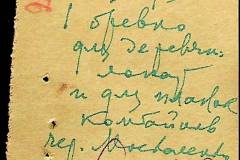 1 бревно
для деревян.
лопат
и для планок
комбайнов
чер. Москаленко